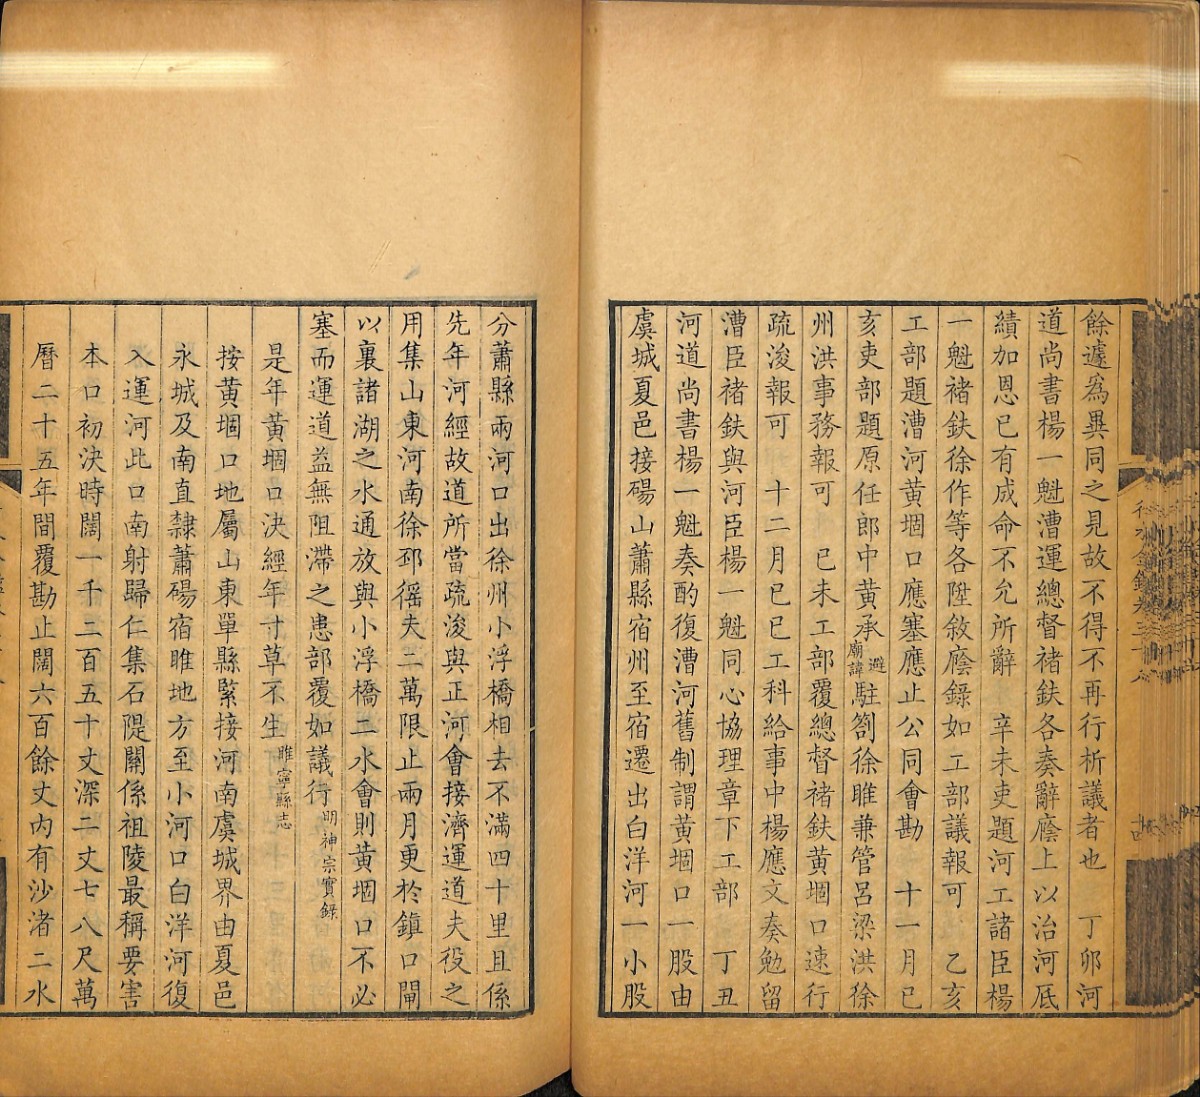 餘遽為異同之見故不得不再行析議者也　丁卯河
道尚書楊一魁漕運總督褚鈇各奏辭廕上以治河厎
績加恩已有成命不允所辭　辛未吏題河工諸臣楊
一魁褚鈇徐作等各陞敘廕錄如工部議報可　乙亥
工部題漕河黃堌口應塞應止公同會勘　十一月己
亥吏部題原任郎中黃承避廟諱駐劄徐睢兼管呂梁洪徐
州洪事務報可　己未工部覆總督褚鈇黃堌口速行
疏浚報可　十二月己巳工科給事中楊應文奏勉留
漕臣褚鈇與河臣楊一魁同心協理章下工部　丁丑
河道尚書楊一魁奏酌復漕河舊制謂黃堌口一股由
虞城夏邑接碭山蕭縣宿州至宿遷出白洋河一小股
分蕭縣兩河口出徐州小浮橋相去不滿四十里且係
先年河經故道所當疏浚與正河會接濟運道夫役之
用集山東河南徐邳徭夫二萬限止兩月更於鎮口閘
以裏諸湖之水通放與小浮橋二水會則黃堌口不必
塞而運道益無阻滯之患部覆如議行明神宗實錄
是年黃堌口決經年寸草不生睢寧縣志
按黃堌口地屬山東單縣緊接河南虞城界由夏邑
永城及南直隸蕭碭宿睢地方至小河口白洋河復
入運河此口南射歸仁集石隄關係祖陵最稱要害
本口初決時闊一千二百五十丈深二丈七八尺萬
曆二十五年間覆勘止闊六百餘丈內有沙渚二水